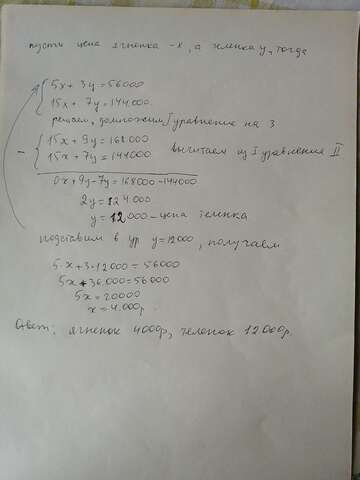 пусть цена ягненка - x, а теленка y, тогда
5x + 3y = 56000
15x + 7y = 144000
решаем, домножим I уравнение на 3
15x + 9y = 168000
15x + 7y = 144000 вычитаем из I уравнения II
0x + 9y - 7y = 168000 - 144000
2y = 24000
y = 12000 - цена теленка
подставим в ур y = 12000, получаем
5·x + 3·12000 = 56000
5x + 36000 = 56000
5x = 20000
x = 4.000р.
Ответ: ягненок 4000р, теленок 12000р.